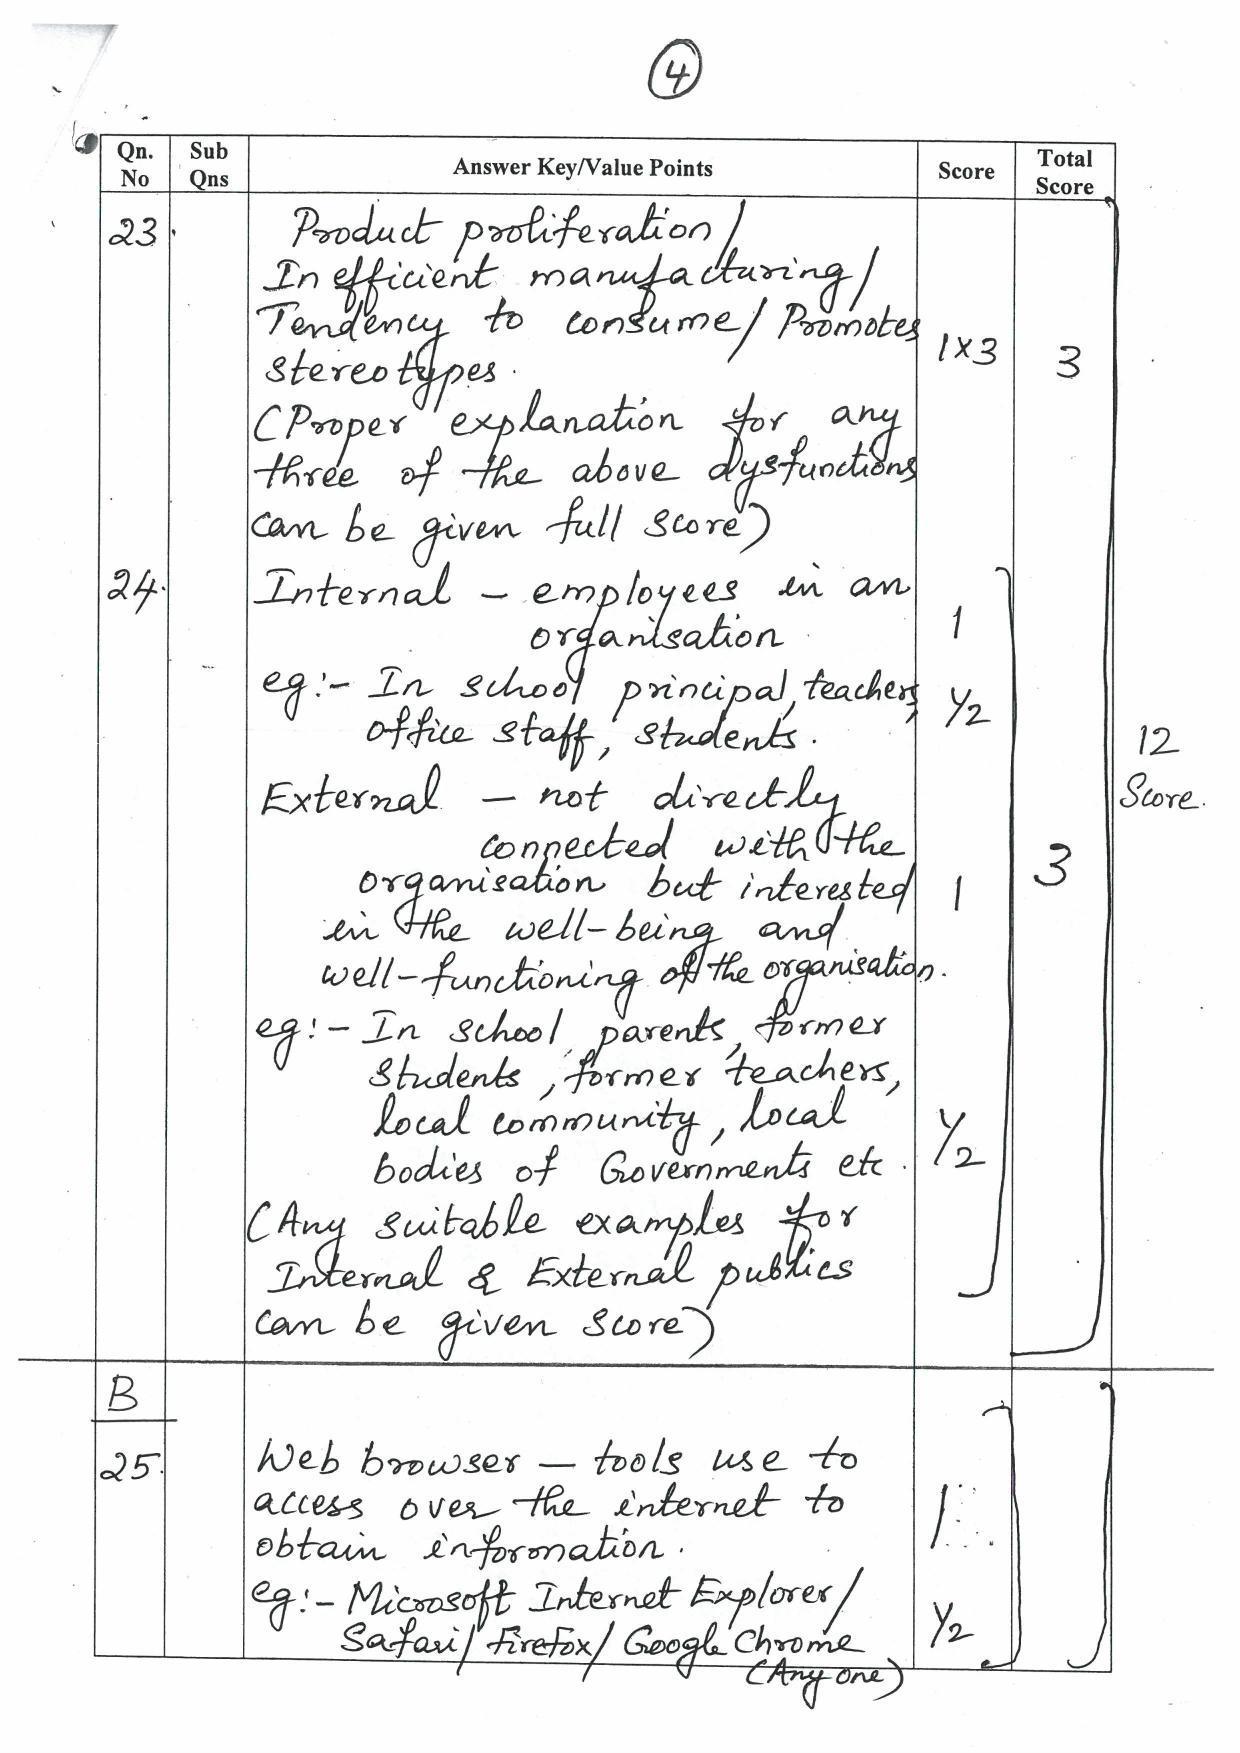 4
Qn. No Sub Qns Answer Key/Value Points Score Total Score
23. Product proliferation/
Inefficient manufacturing/
Tendency to consume/ Promotes
stereotypes. 1x3 3
(Proper explanation for any
three of the above dysfunctions
can be given full score)
24. Internal – employees in an
organisation 1
eg:- In school principal, teachers,
office staff, students. 1/2
External – not directly
connected with the
organisation but interested 1 3
in the well-being and
well-functioning of the organisation.
12
Score.
eg:- In school parents, former
students, former teachers,
local community, local
bodies of Governments etc. 1/2
(Any suitable examples for
Internal & External publics
can be given score)
B
25. Web browser – tools use to
access over the internet to 1
obtain information.
eg:- Microsoft Internet Explorer/
Safari/ Firefox/ Google Chrome 1/2
(Any one)